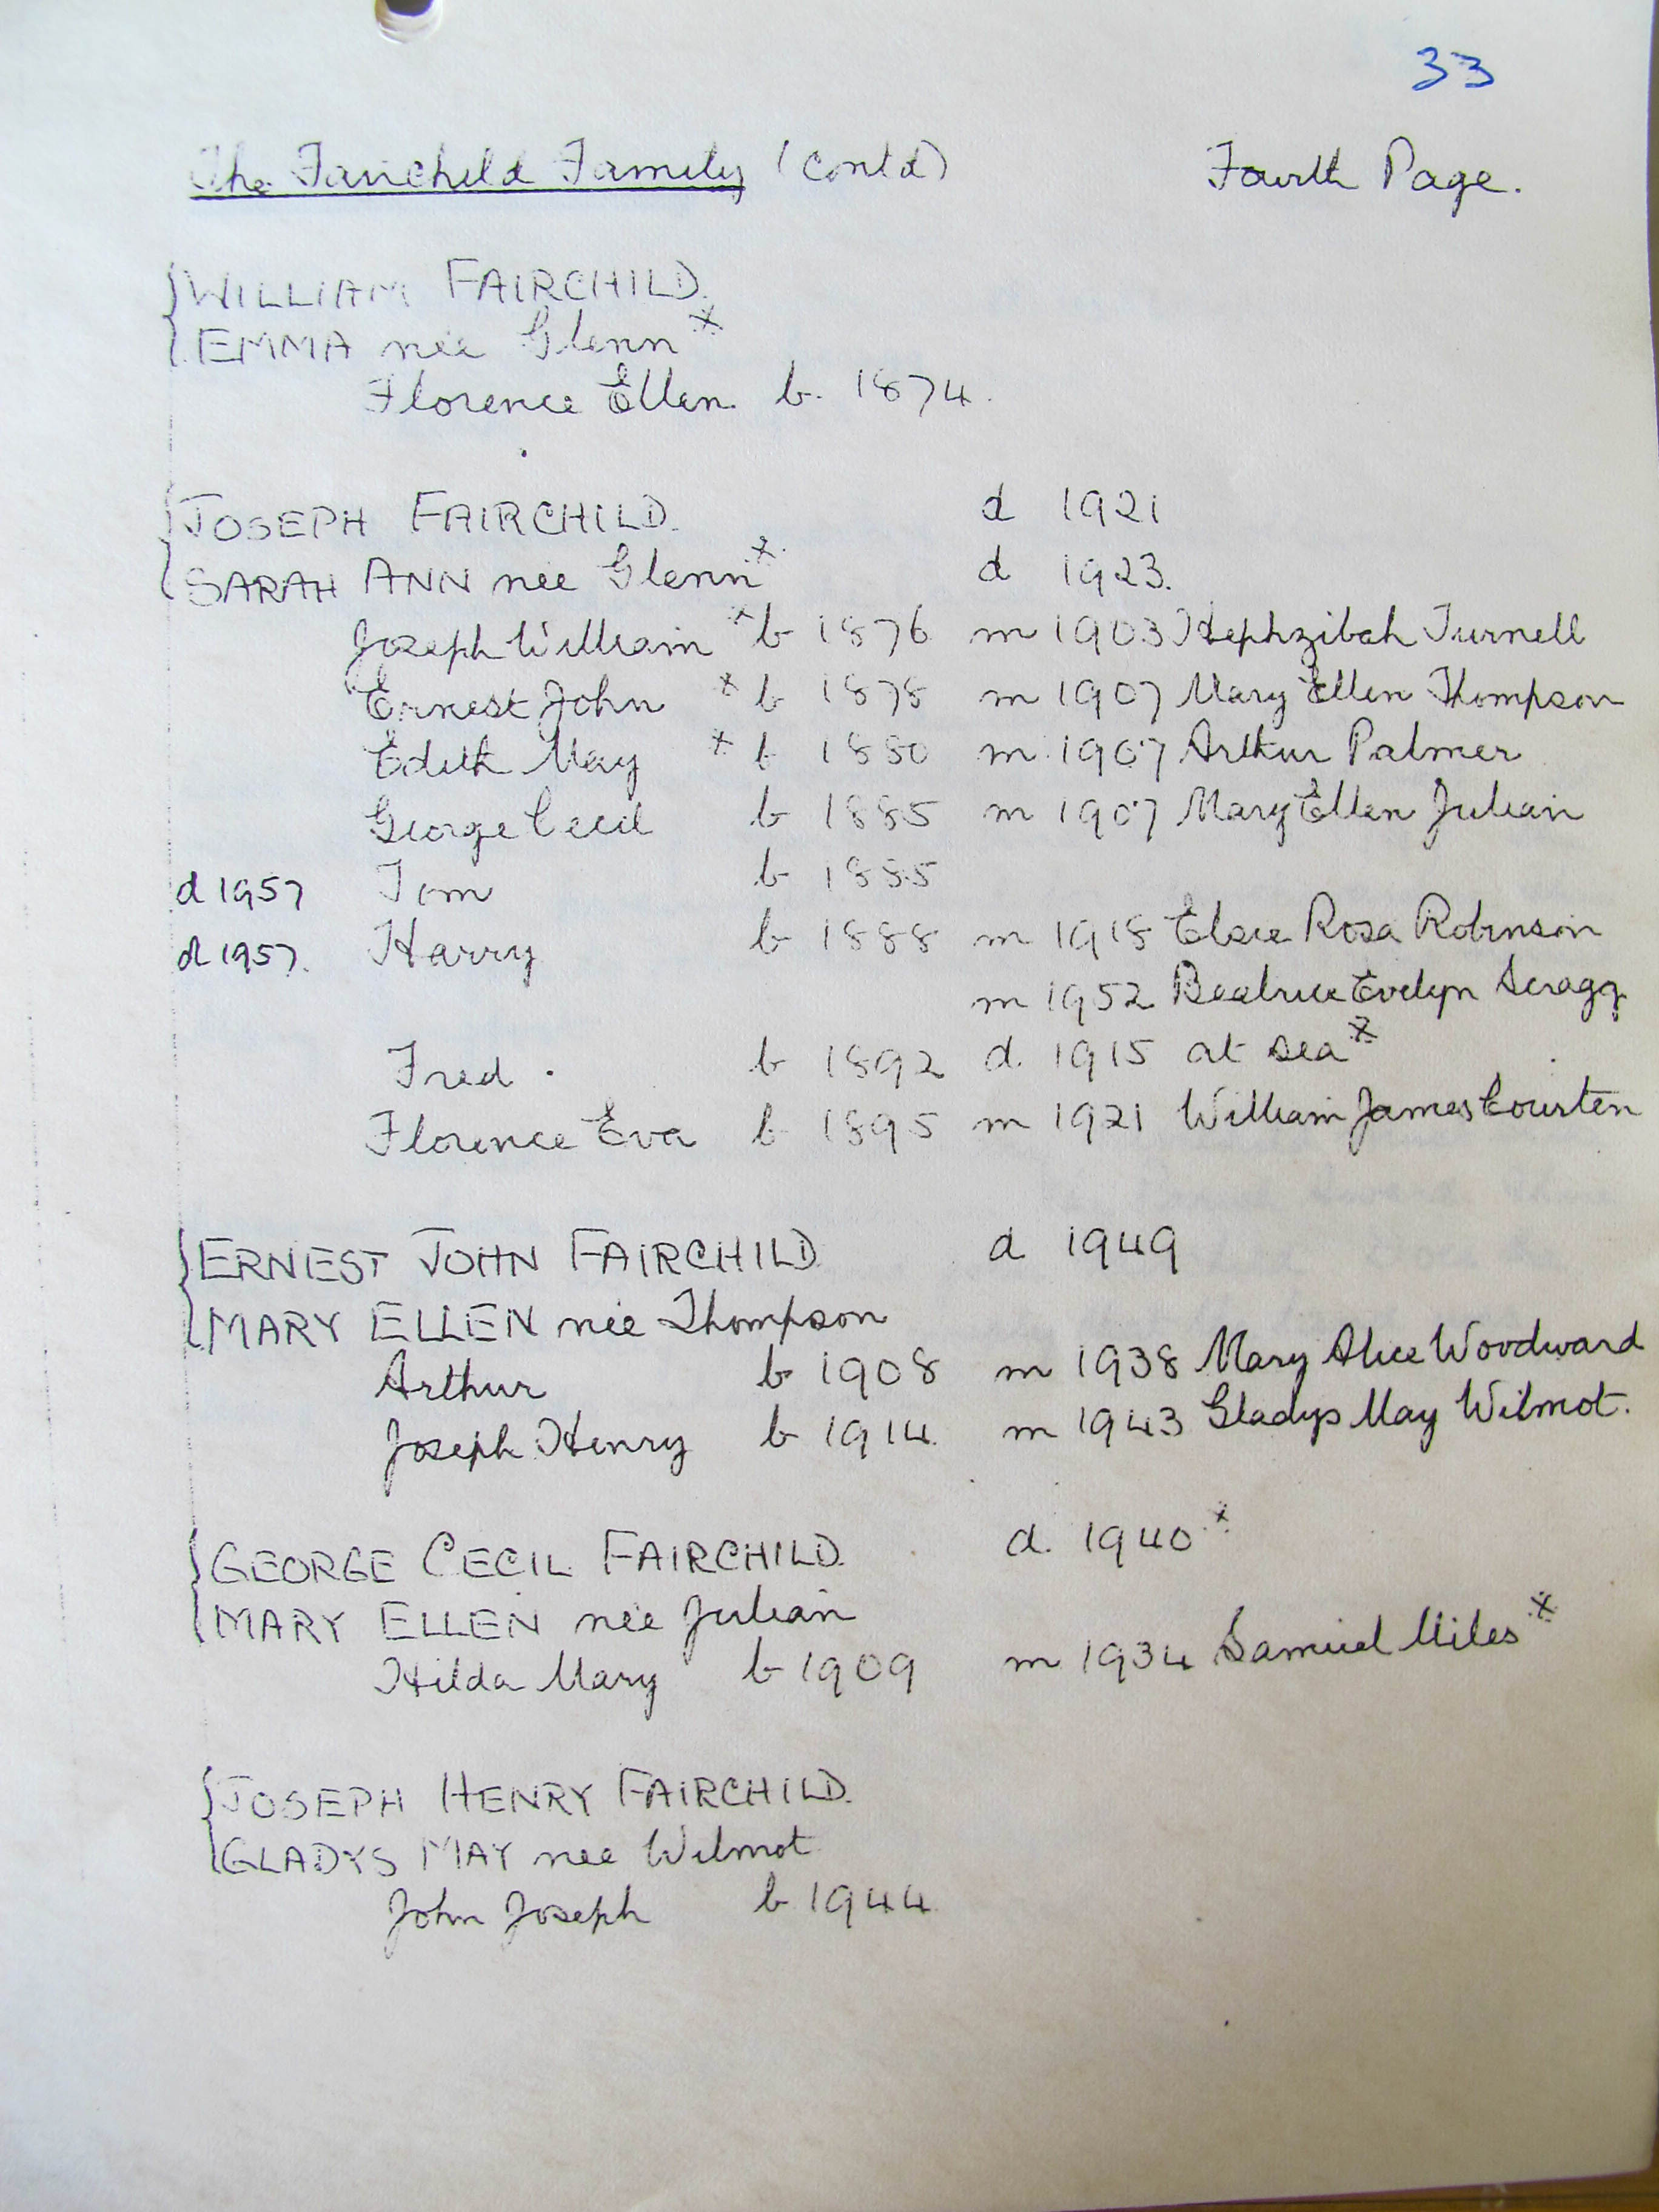 33
The Fairchild Family (Contd) Fourth Page.
WILLIAM FAIRCHILD.
EMMA nee Glenn *
Florence Ellen b. 1874.
JOSEPH FAIRCHILD. d 1921
SARAH ANN nee Glenn * d 1923.
Joseph William * b 1876 m 1903 Hephzibah Turnell
Ernest John * b 1878 m 1907 Mary Ellen Thompson
Edith May * b 1880 m 1907 Arthur Palmer
George Cecil b 1885 m 1907 Mary Ellen Julian
d 1957 Tom b 1885
d 1957. Harry b 1888 m 1918 Elsie Rosa Robinson
m 1952 Beatrice Evelyn Scragg
Fred b 1892 d. 1915 at sea *
Florence Eva b 1895 m 1921 William James Courten
ERNEST JOHN FAIRCHILD d 1949
MARY ELLEN nee Thompson
Arthur b 1908 m 1938 Mary Alice Woodward
Joseph Henry b 1914 m 1943 Gladys May Wilmot.
GEORGE CECIL FAIRCHILD. d. 1940 *
MARY ELLEN nee Julian
Hilda Mary b 1909 m 1934 Samuel Miles *
JOSEPH HENRY FAIRCHILD.
GLADYS MAY nee Wilmot
John Joseph b 1944